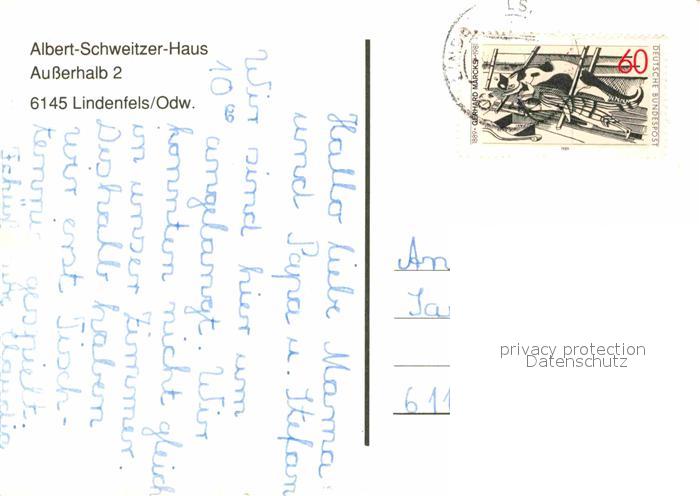 Albert-Schweitzer-Haus
Außerhalb 2
6145 Lindenfels/Odw.
Hallo liebe Mama
und Papa u. Stefan
Wir sind hier um
10°° angelangt. Wir
konnten nicht gleich
in unser Zimmer.
Deshalb haben
wir erst Tisch-
tennis gespielt.
Claudia
DEUTSCHE BUNDESPOST
60
1889 • GERHARD MARCKS • 1981
1989
An
611
privacy protection
Datenschutz